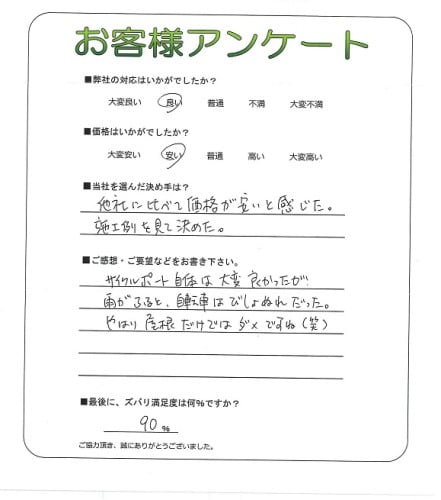 お客様アンケート
■弊社の対応はいかがでしたか？
大変良い 良い 普通 不満 大変不満
■価格はいかがでしたか？
大変安い 安い 普通 高い 大変高い
■当社を選んだ決め手は？
他社に比べて価格が安いと感じた。
施工例を見て決めた。
■ご感想・ご要望などをお書き下さい。
サイクルポート自体は大変良かったが
雨がふると、自転車はびしょぬれだった。
やはり屋根だけではダメですね(笑)
■最後に、ズバリ満足度は何%ですか？
90 %
ご協力頂き、誠にありがとうございました。